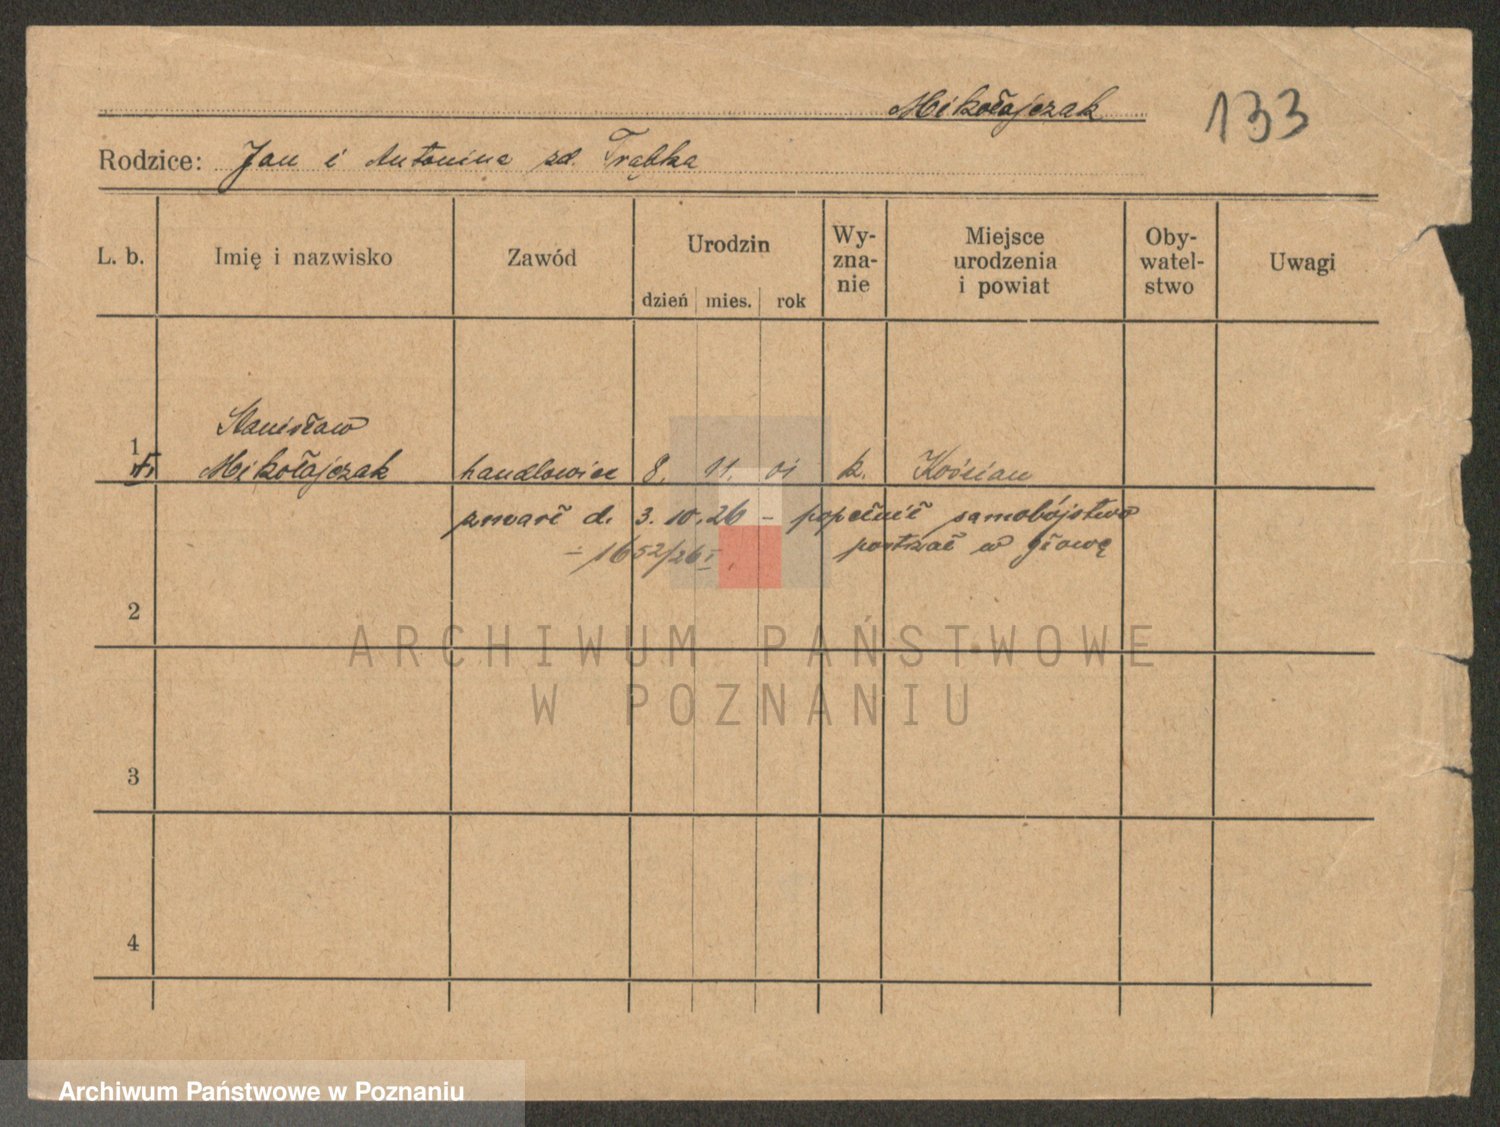 Mikołajczak
133
Rodzice: Jan i Antonina zd. Trąbka
L. b.
Imię i nazwisko
Zawód
Urodzin
dzień mies. rok
Wy-
zna-
nie
Miejsce
urodzenia
i powiat
Oby-
watel-
stwo
Uwagi
1
Stanisław
Mikołajczak handlowiec 8. 11. 01 k. Kościan
zmarł d. 3.10.26 - popełnił samobójstwo
- 1652/26 I postrzał w głowę
2
3
4
ARCHIWUM PAŃSTWOWE
W POZNANIU
Archiwum Państwowe w Poznaniu